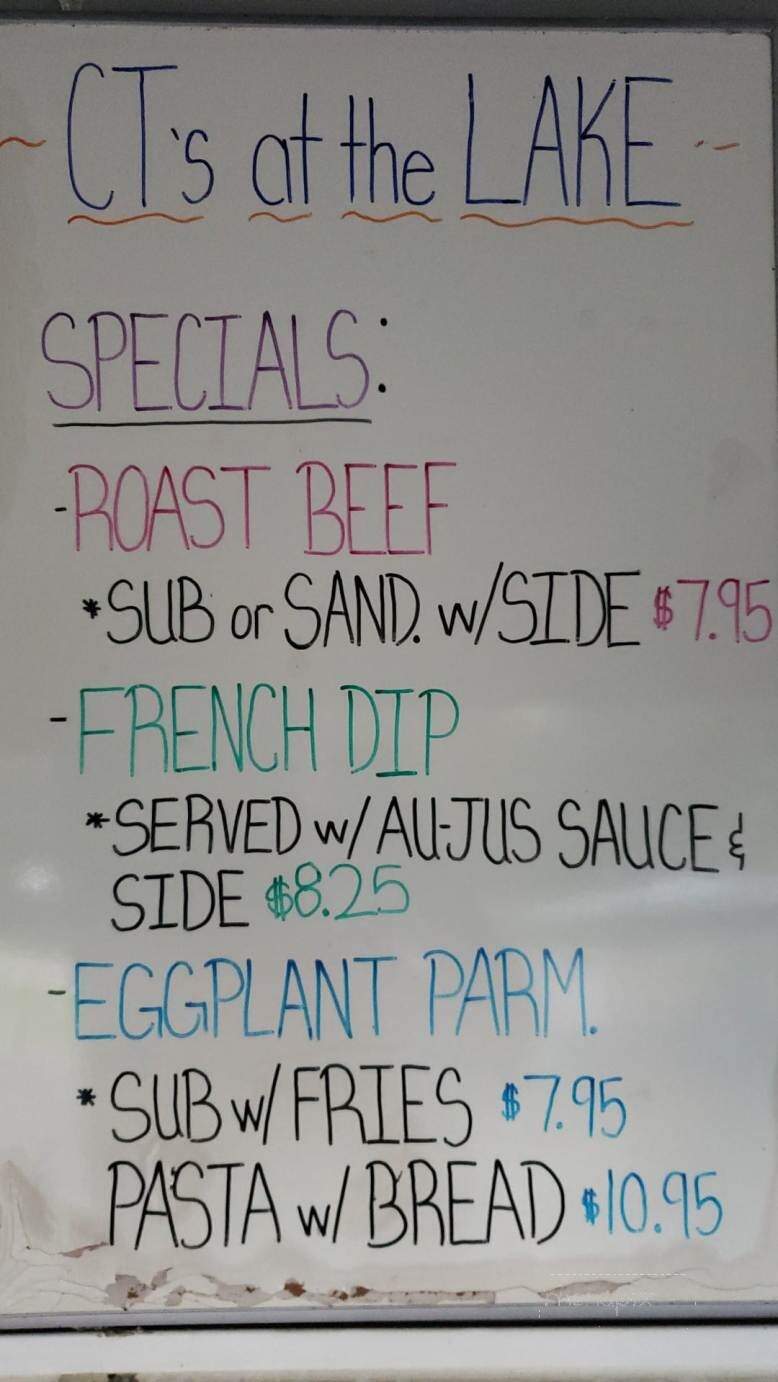 CT's at the LAKE
SPECIALS:
-ROAST BEEF
*SUB or SAND. w/SIDE $7.95
-FRENCH DIP
*SERVED w/ AU-JUS SAUCE &
SIDE $8.25
-EGGPLANT PARM.
* SUB w/ FRIES $7.95
PASTA w/ BREAD $10.95